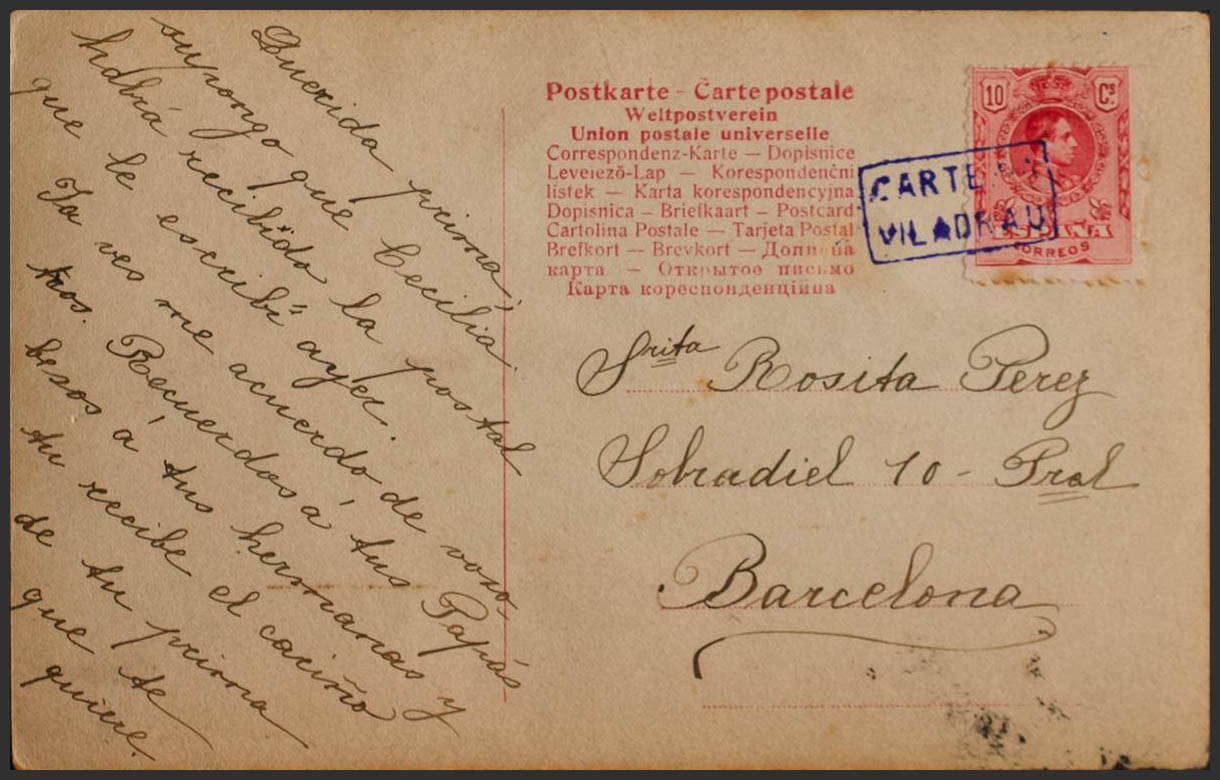 Querida prima,
supongo que Cecilia
habrá recibido la postal
que le escribí ayer.
Ya ves me acuerdo de voso-
tros. Recuerdos á tus Papás
besos á tus hermanas y
tu recibe el cariño
de tu prima
que te
quiere.
Postkarte - Carte postale
Weltpostverein
Union postale universelle
Correspondenz-Karte — Dopisnice
Levelező-Lap — Korespondenční
listek — Karta korespondencyjna
Dopisnica — Briefkaart — Postcard
Cartolina Postale — Tarjeta Postal
Brefkort — Brevkort —
карта — Открытое письмо
Карта кореспонденційна
10 Cs.
ESPAÑA
CORREOS
VILADRAU
Srita Rosita Perez
Sobradiel 10 - Pral
Barcelona